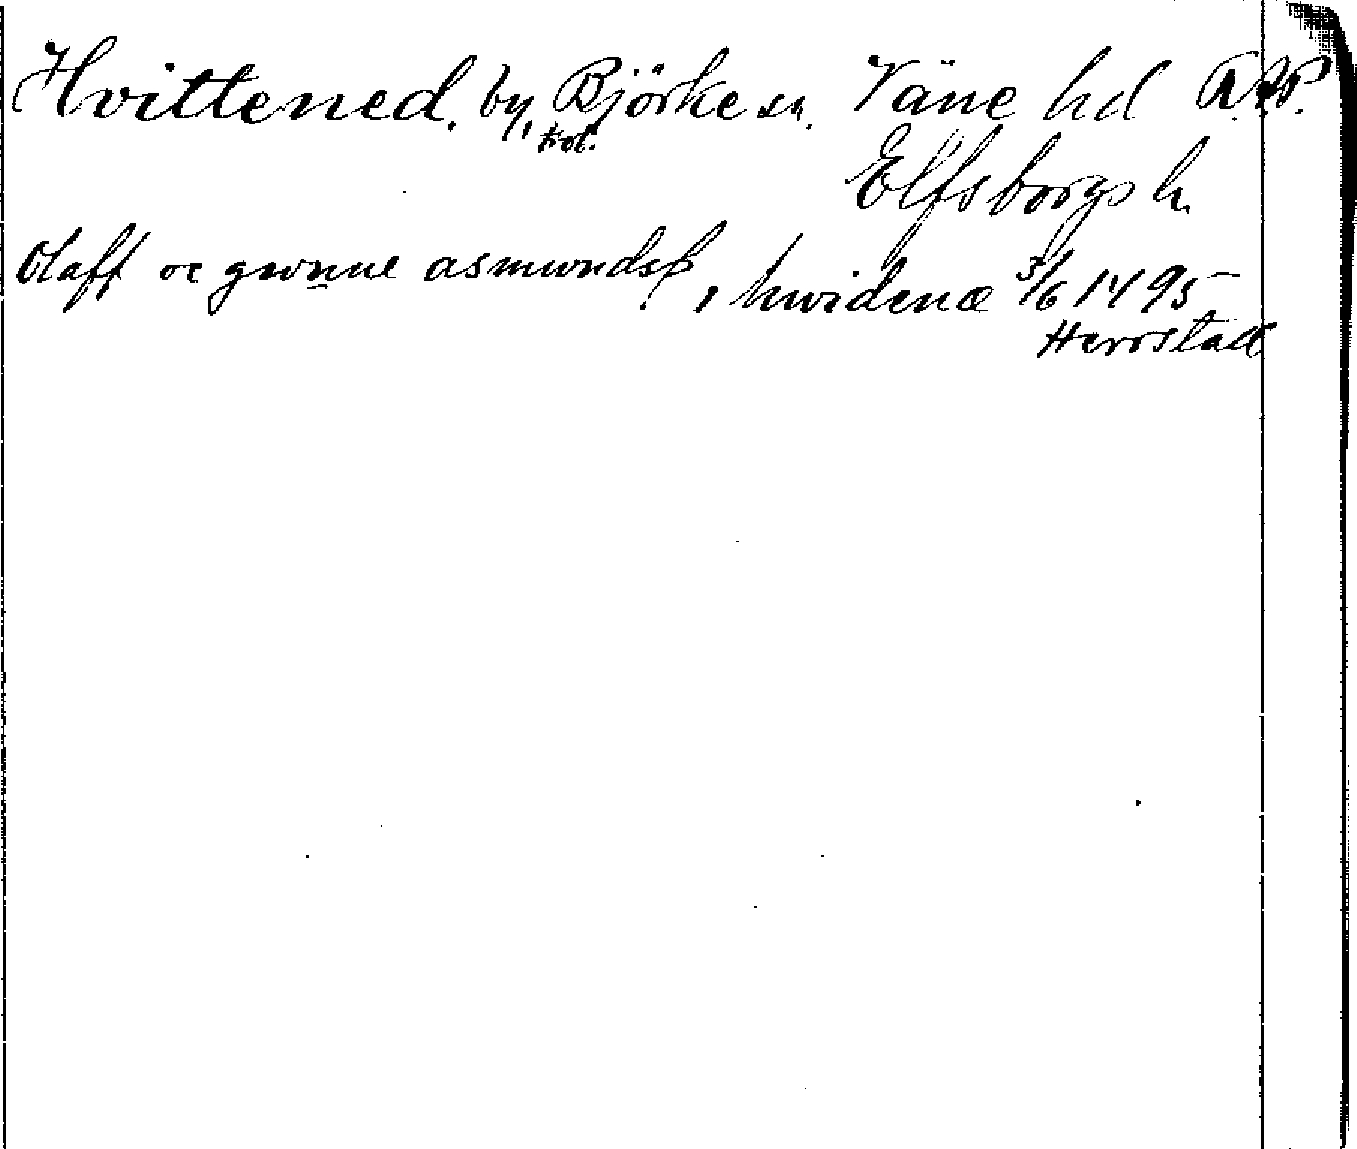 Hvittened. by, Björke sn. Väne hd R.A.P.
kol.
Elfsborgs l.
Olaff oc gwnne asmwndsß, hwidenæ 3/6 1495
Herrstad